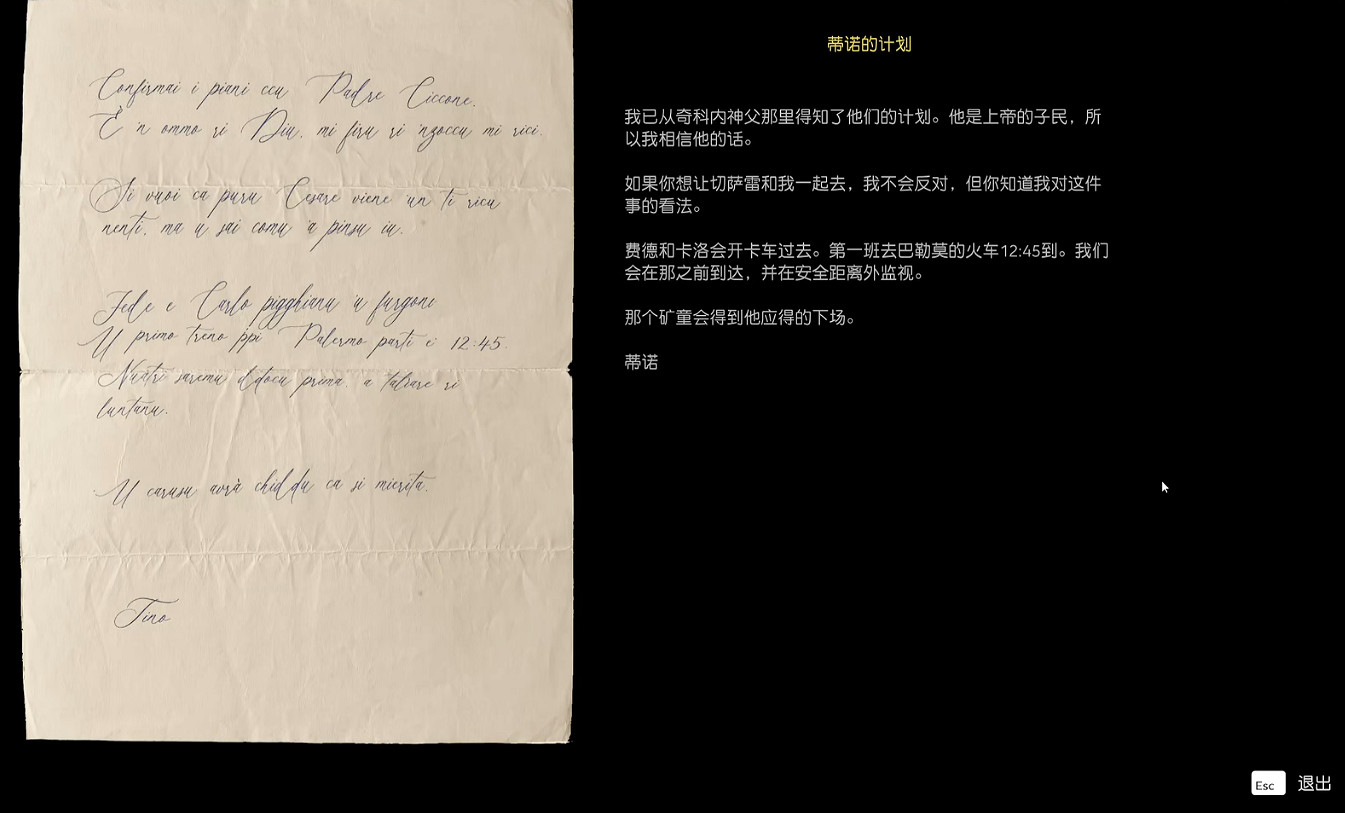 Confirmai i piani ccu Padre Ciccone.
È 'n ommo ri Diu, mi firu ri 'nzoccu mi rici.
Si vuoi ca puru Cesare viene un ti ricu
nenti, ma u sai comu 'a pinsu iu.
Fede e Carlo pigghianu 'u furgone
U primo treno ppi Palermo parti e 12:45.
Nuatri saremu ddocu prima, a taliare ri
luntanu.
U carusu avrà chiddu ca si mierita.
Tino
蒂诺的计划
我已从奇科内神父那里得知了他们的计划。他是上帝的子民，所
以我相信他的话。
如果你想让切萨雷和我一起去，我不会反对，但你知道我对这件
事的看法。
费德和卡洛会开卡车过去。第一班去巴勒莫的火车12:45到。我们
会在那之前到达，并在安全距离外监视。
那个矿童会得到他应得的下场。
蒂诺
Esc 退出